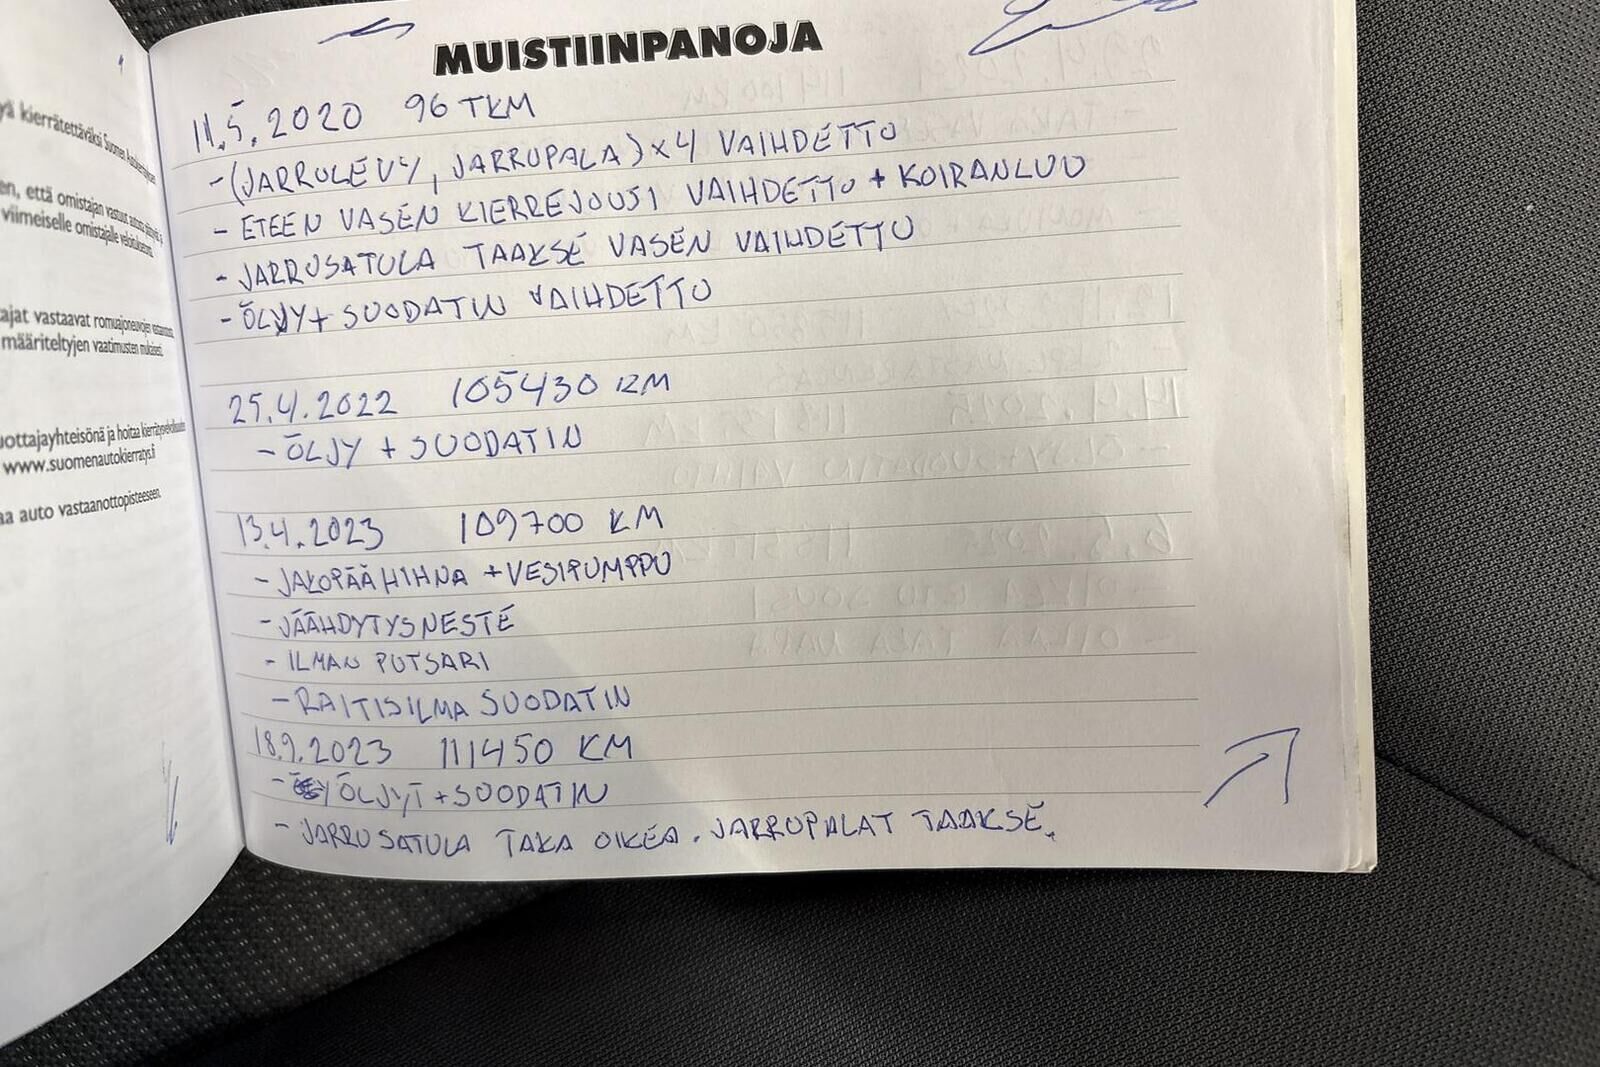 kierrätettäväksi Suomen
että omistajan vastuut
viimeiselle omistajalle
vastaavat romuajoneuvojen
määriteltyjen vaatimusten mukaisesti.
ja hoitaa
www.suomenautokierratys.fi
auto vastaanottopisteeseen.
MUISTIINPANOJA
11.5.2020 96 TKM
- (JARROLEVY, JARRUPALA) x4 VAIHDETTO
- ETEEN VASEN KIERREJOUSI VAIHDETTO + KOIRANLUU
- JARRUSATULA TAAKSE VASEN VAIHDETTU
- ÖLJY + SUODATIN VAIHDETTU
25.4.2022 105430 KM
- ÖLJY + SUODATIN
13.4.2023 109700 KM
- JAKOPÄÄHIHNA + VESIPUMPPU
- JÄÄHDYTYSNESTE
- ILMAN PUTSARI
- RAITISILMA SUODATIN
18.9.2023 111450 KM
- ÖLJYT + SUODATIN
- JARRUSATULA TAKA OIKEA. JARRUPALAT TAAKSE.